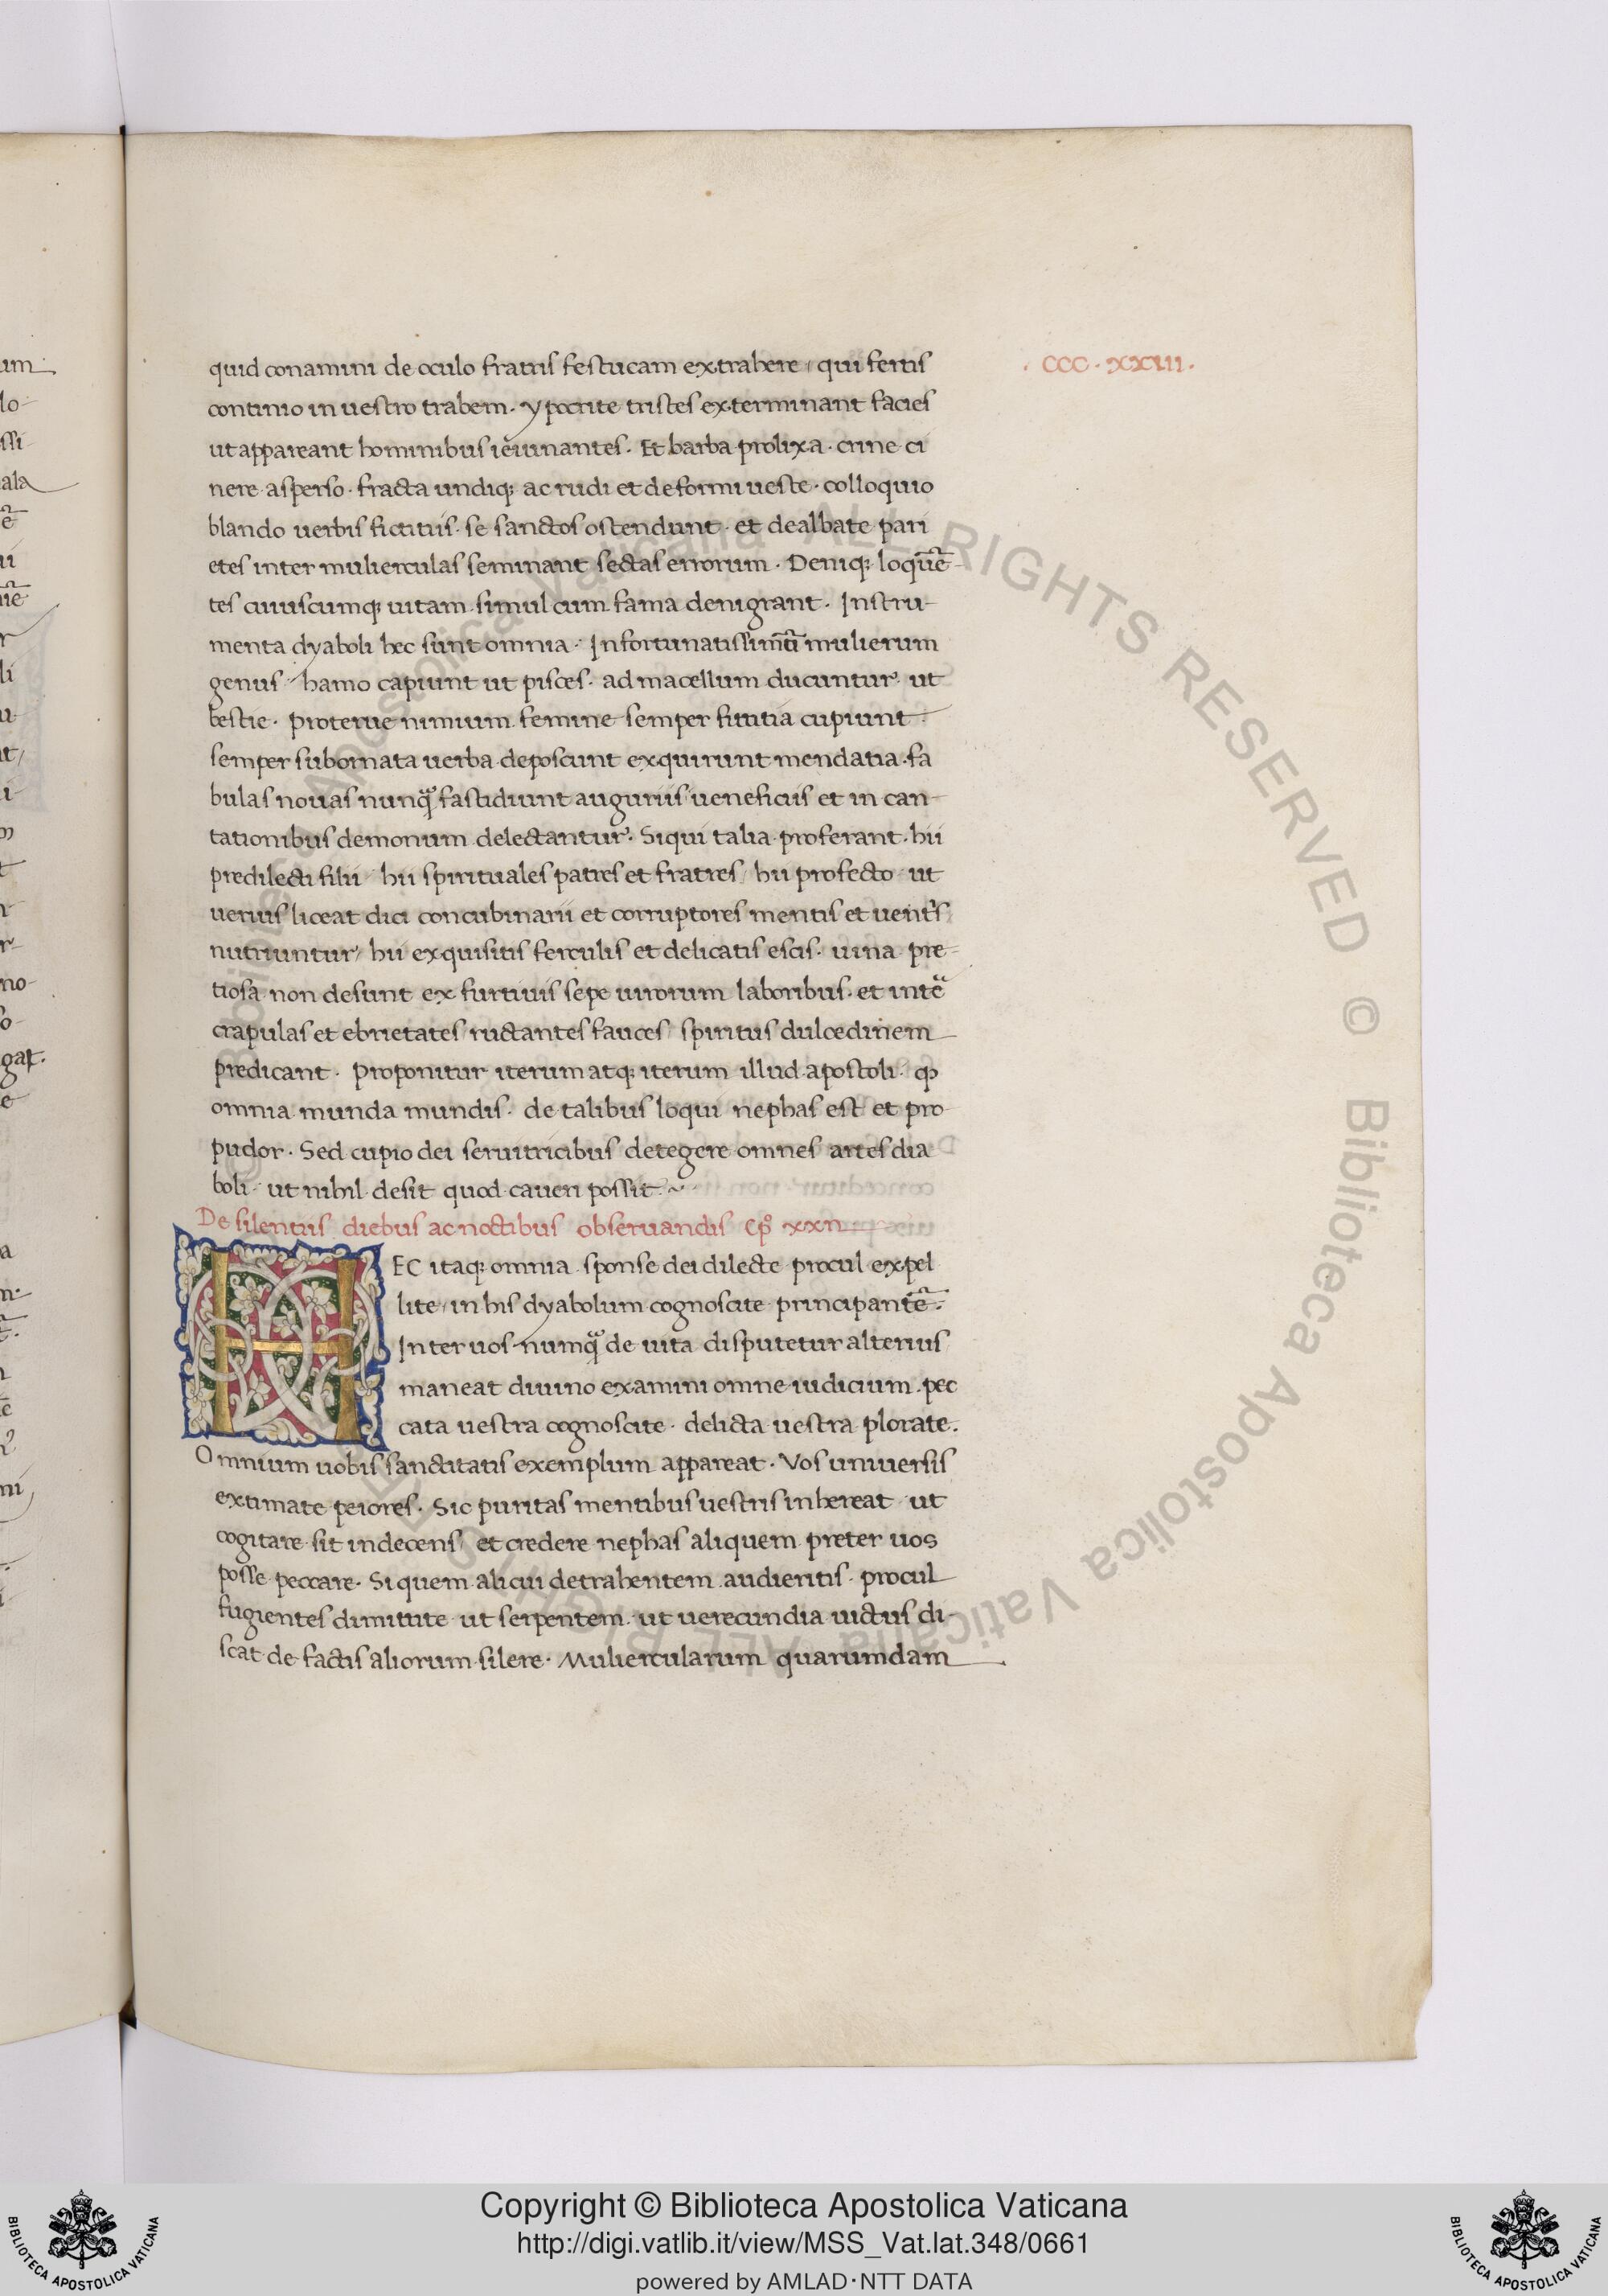 quid conamini de oculo fratris festucam extrahere / qui fertis
· CCC · XXVII ·
continuo in uestro trabem · ypocrite tristes exterminant facies
ut appareant hominibus ieiunantes · Et barba prolixa · crine ci
nere asperso · fracta undiq; ac rudi et deformi ueste · colloquio
blando uerbis fictitiis · se sanctos ostendunt · et dealbate pari
etes inter mulierculas seminant sectas errorum · Deniq; loquẽ-
tes cuiuscumq; uitam simul cum fama denigrant · Instru-
menta dyaboli hec sunt omnia · Infortunatissimũ mulierum
genus / hamo capiunt ut pisces · ad macellum ducuntur ut
bestie · Proterue nimium femine semper fititia cupiunt ·
semper subornata uerba deposcunt exquirunt mendatia · fa
bulas nouas nunq̃ fastidiunt auguriis ueneficiis et in can-
tationibus demonum delectantur · Siqui talia proferant · hii
predilecti filii / hii spirituales patres et fratres / hii profecto ut
uerius liceat dici concubinarii et corruptores mentis et uentrs
nutriuntur / hii exquisitis ferculis et delicatis escis · uina pre-
tiosa non desunt ex furtiuis sepe uirorum laboribus · et intẽ
crapulas et ebrietates / ructantes fauces / spiritus dulcedinem
predicant · Proponitur iterum atq; iterum illud apostoli · qɔ
omnia munda mundis · de talibus loqui nephas est et pro
pudor · Sed cupio dei seruitricibus detegere omnes artes dia
boli · ut nihil desit quod caueri possit · ~
De silentiis diebus ac noctibus obseruandis Cp̊ xxii
HEC itaq; omnia sponse dei dilecte procul expel
lite / in his dyabolum cognoscite principantẽ ·
Inter uos numq̃ de uita disputetur alterius
maneat diuino examini omne iudicium · pec
cata uestra cognoscite · delicta uestra plorate ·
Omnium uobis sanctitatis exemplum appareat · Vos uniuersis
extimate peiores · Sic puritas mentibus uestris inhereat ut
cogitare sit indecens / et credere nephas aliquem preter uos
posse peccare · Si quem alicui detrahentem audieritis · procul
fugientes dimitite ut serpentem · ut uerecundia uictus di-
scat de factis aliorum silere · Muliercularum quarumdam
Copyright © Biblioteca Apostolica Vaticana
http://digi.vatlib.it/view/MSS_Vat.lat.348/0661
powered by AMLAD·NTT DATA
BIBLIOTECA APOSTOLICA VATICANA
BIBLIOTECA APOSTOLICA VATICANA
© Biblioteca Apostolica Vaticana ALL RIGHTS RESERVED © Biblioteca Apostolica Vaticana ALL RIGHTS RESERVED